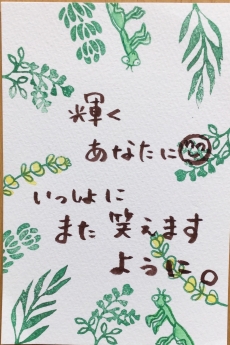 輝く
あなたに
いっしょに
また笑えます
ように。